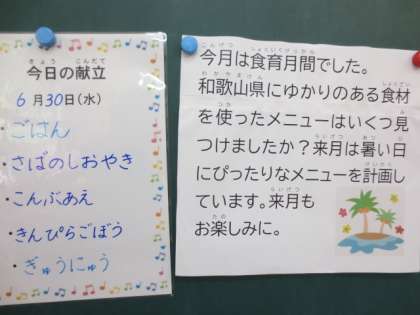 今日の献立
6月30日(水)
・ごはん
・さばのしおやき
・こんぶあえ
・きんぴらごぼう
・ぎゅうにゅう
今月は食育月間でした。
和歌山県にゆかりのある食材
を使ったメニューはいくつ見
つけましたか？来月は暑い日
にぴったりなメニューを計画し
ています。来月も
お楽しみに。